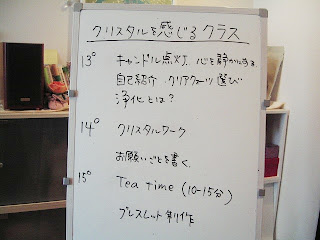 クリスタルを感じるクラス
13° キャンドル点灯. 心を静かにする
自己紹介. クリアクォーツ選び
浄化とは?
14° クリスタルワーク
お願いごとを書く.
15° Tea Time (10-15分)
ブレスレット制作